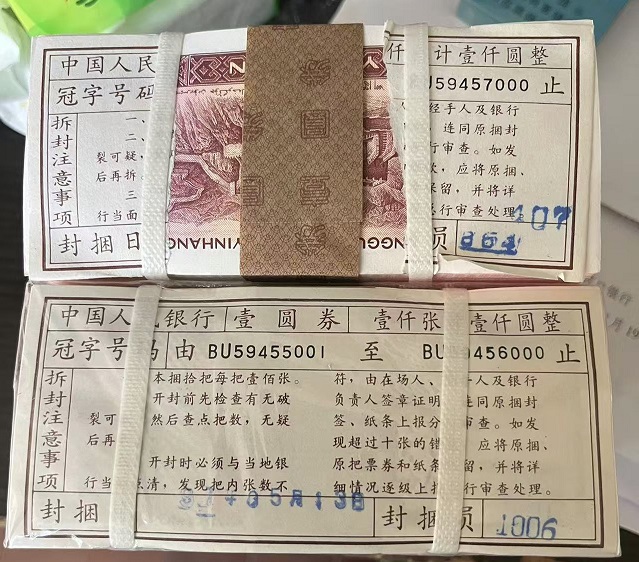 中国人民
仟 计壹仟圆整
YIN
冠字号码
U59457000 止
拆封注意事项
一、
二、
裂可疑,
后再拆.
三
行当面
经手人及银行
连同原捆封
行审查。如发
应将原捆、
保留,并将详
行审查处理
107
封捆日
YINHANG
员
864
中国人民银行 壹圆券 壹仟张 壹仟圆整
冠字号码 由 BU59455001 至 BU59456000 止
拆封注意事项
本捆拾把每把壹佰张。
开封前先检查有无破
裂可 然后查点把数,无疑
后再
开封时必须与当地银
行当 点清,发现把内张数不
符,由在场人、 人及银行
负责人签章证明 连同原捆封
签、纸条上报分 审查。如发
现超过十张的错 应将原捆、
原把票券和纸条 并将详
细情况逐级上报 行审查处理。
5月13日
封捆
封捆员 1006